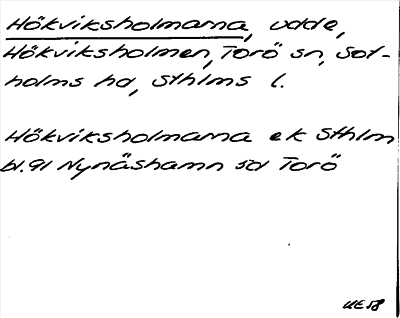 Hökviksholmarna, udde,
Hökviksholmen, Torö sn, Sot-
holms hd, Sthlms l.
Hökviksholmarna ek Sthlm
bl.91 Nynäshamn so Torö
UE58